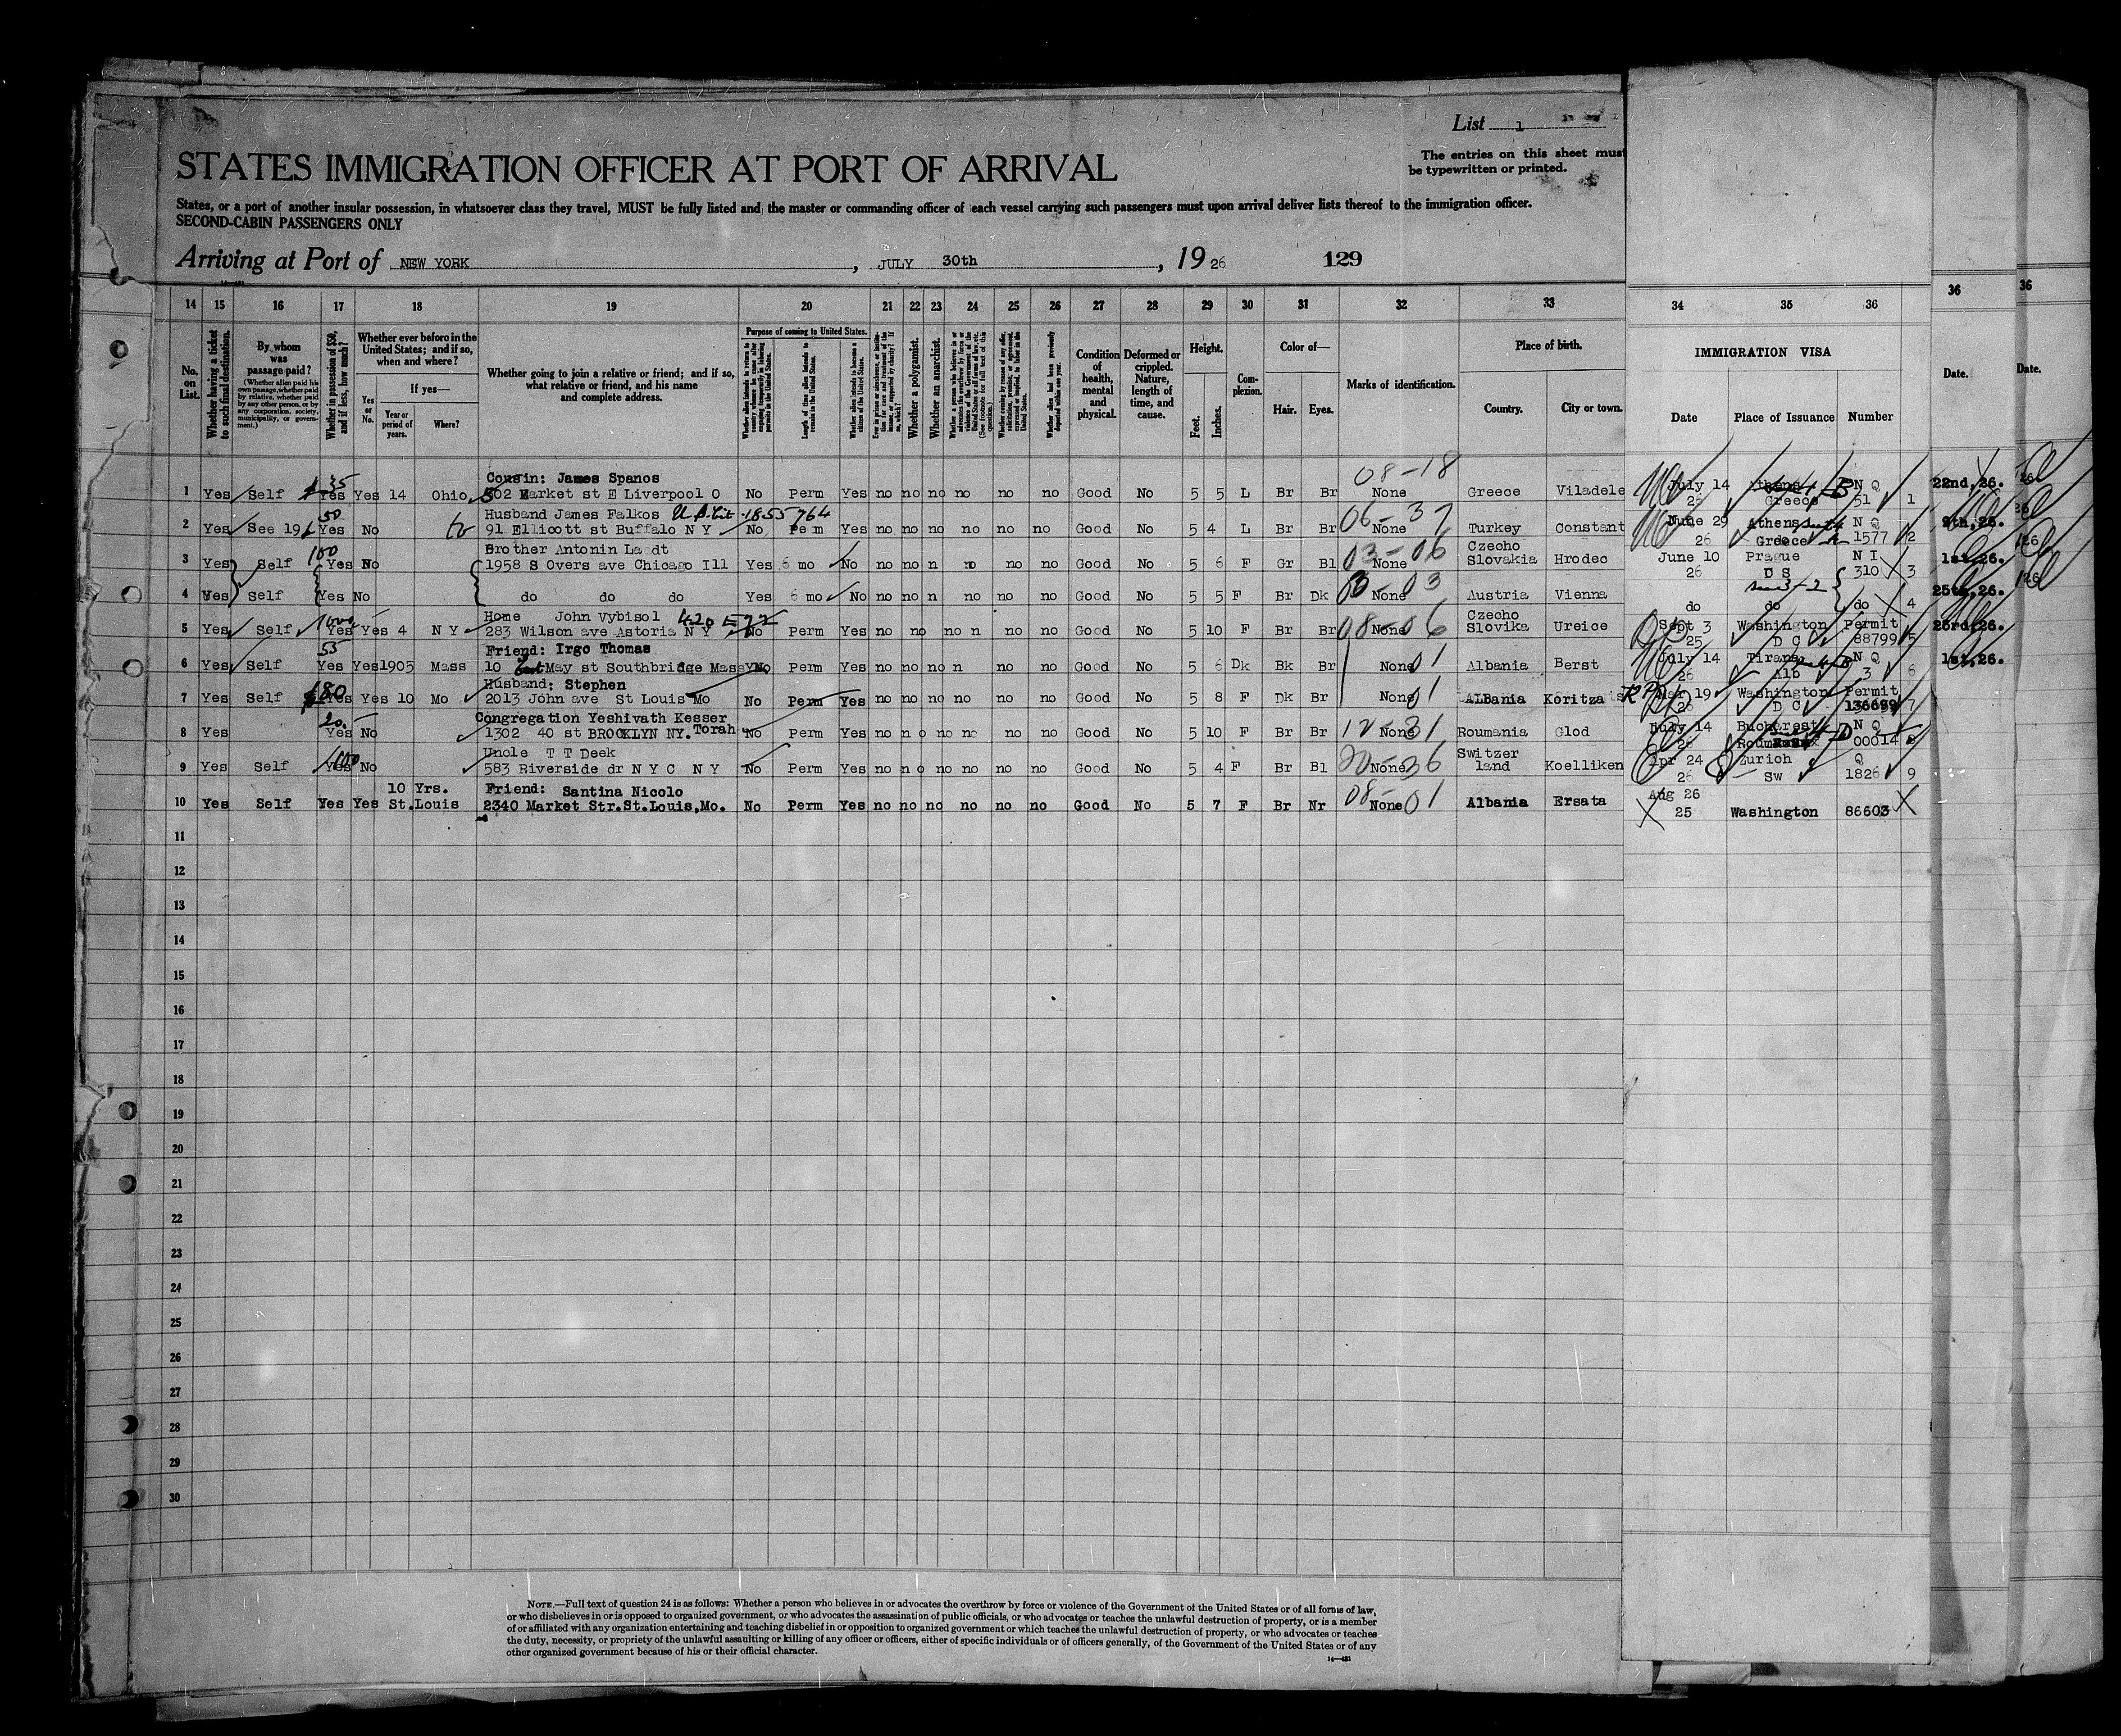 List 1
The entries on this sheet must
be typewritten or printed.
STATES IMMIGRATION OFFICER AT PORT OF ARRIVAL
States, or a port of another insular possession, in whatsoever class they travel, MUST be fully listed and the master or commanding officer of each vessel carrying such passengers must upon arrival deliver lists thereof to the immigration officer.
SECOND-CABIN PASSENGERS ONLY
Arriving at Port of NEW YORK, JULY 30th, 19 26 129
14 15 16 17 18 19 20 21 22 23 24 25 26 27 28 29 30 31 32 33 34 35 36 36 36
No. on List.
Whether having a ticket to such final destination.
By whom was passage paid?
(Whether alien paid his own passage, whether paid by relative, whether paid by any other person, or by any corporation, society, municipality, or government.)
Whether in possession of $50, and if less, how much?
Whether ever before in the United States; and if so, when and where?
Yes or No.
If yes—
Year or period of years.
Where?
Whether going to join a relative or friend; and if so, what relative or friend, and his name and complete address.
Purpose of coming to United States.
Length of time alien intends to remain in the United States.
Whether alien intends to become a citizen of the United States.
Whether a polygamist.
Whether an anarchist.
Condition of health, mental and physical.
Deformed or crippled. Nature, length of time, and cause.
Height.
Feet. Inches.
Complexion.
Color of—
Hair. Eyes.
Marks of identification.
Place of birth.
Country. City or town.
IMMIGRATION VISA
Date Place of Issuance Number
Date. Date.
Cousin: James Spanos 08-18
1 Yes Self 35 Yes Yes 14 Ohio 502 Market st E Liverpool O No Perm Yes no no no no no no Good No 5 5 L Br Br None Greece Viladele July 14 26 Athens Greece N Q 51 1 22nd, 26.
Husband James Falkos 1855764
2 Yes See 19 50 Yes No 91 Ellicott st Buffalo N Y No Pe m Yes no no no no no no Good No 5 4 L Br Br 06-37 None Turkey Constant June 29 26 Athens Greece N Q 1577 2 9th, 26.
Brother Antonin La dt
3 Yes Self 100 Yes No 1958 S Overs ave Chicago Ill Yes 6 mo No no no n no no no Good No 5 6 F Gr Bl 03-06 None Czecho Slovakia Hrodec June 10 26 Prague N I 310 3 1st, 26.
4 Yes Self Yes No do do do Yes 6 mo No no no n no no no Good No 5 5 F Br Dk None Austria Vienna do do do 4 25th, 26.
Home John Vybisol 420 E 72
5 Yes Self 1000 Yes Yes 4 N Y 283 Wilson ave Astoria N Y No Perm Yes no no no n no no Good No 5 10 F Br Br 08-06 None Czecho Slovika Ureice Sept 3 25 Washington D C Permit 88799 5 23rd, 26.
Friend: Irgo Thomas
6 Yes Self 55 Yes Yes 1905 Mass 10 May st Southbridge Mass No Perm Yes no no no n no no Good No 5 6 Dk Bk Br None 01 Albania Berst July 14 26 Tirana Alb N Q 3 6 1st, 26.
Husband: Stephen
7 Yes Self 180 Yes Yes 10 Mo 2013 John ave St Louis Mo No Perm Yes no no no no no no Good No 5 8 F Dk Br None 01 ALBania Koritza Mar 19 26 Washington D C Permit 7
Congregation Yeshivath Kesser
8 Yes 20. Yes No 1302 40 st BROOKLYN NY. Torah No Perm Yes no n o no no no no Good No 5 10 F Br Br None Roumania Glod July 14 26 Bucharest N Q 00014 8
Uncle T T Deek
9 Yes Self 1000 Yes No 583 Riverside dr N Y C N Y No Perm Yes no n o no no no no Good No 5 4 F Br Bl None Switzer land Koelliken Apr 24 26 Zurich Sw Q 1826 9
10 Yrs. Friend: Santina Nicolo
10 Yes Self Yes Yes St.Louis 2340 Market Str.St.Louis,Mo. No Perm Yes no no no no no no Good No 5 7 F Br Nr 08-01 None Albania Ersata Aug 26 25 Washington 86603
11
12
13
14
15
16
17
18
19
20
21
22
23
24
25
26
27
28
29
30
NOTE.—Full text of question 24 is as follows: Whether a person who believes in or advocates the overthrow by force or violence of the Government of the United States or of all forms of law,
or who disbelieves in or is opposed to organized government, or who advocates the assassination of public officials, or who advocates or teaches the unlawful destruction of property, or is a member
of or affiliated with any organization entertaining and teaching disbelief in or opposition to organized government or which teaches the unlawful destruction of property, or who advocates or teaches
the duty, necessity, or propriety of the unlawful assaulting or killing of any officer or officers, either of specific individuals or of officers generally, of the Government of the United States or of any
other organized government because of his or their official character.
14—431